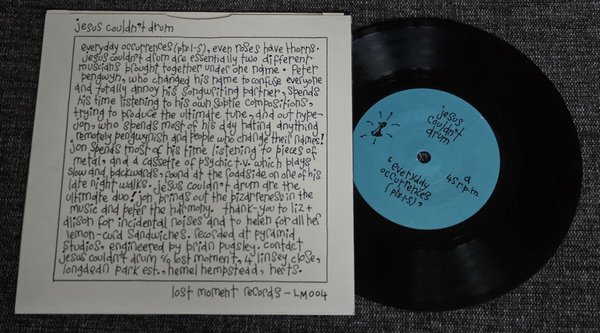 jesus couldn't drum
everyday occurrences (pts1-5), even roses have thorns.
jesus couldn't drum are essentially two different
musicians brought together under one name. Peter
pengwyn, who changed his name to confuse everyone
and totally annoy his songwriting partner, spends
his time listening to his own subtle compositions,
trying to produce the ultimate tune, and out hype-
jon, who spends most of his day hating anything
remotely penguinish and people who change their names!
jon spends most of his time listening to pieces of
metal, and a cassette of psychic t.v. which plays
slow and backwards, found at the roadside on one of his
late night walks. jesus couldn't drum are the
ultimate duo! jon brings out the bizarreness in the
music and peter the harmony. thank-you to liz +
alison for incidental noises and to helen for all her
lemon-curd sandwiches. recorded at pyramid
studios, engineered by brian pugsley. contact
jesus couldn't drum c/o lost moment, 4 linsey close,
longdean park est., hemel hempstead, herts.
lost moment records - LM004
jesus
couldn't
drum
a
45 r.p.m.
'everyday
occurrences
(pts1-5)'